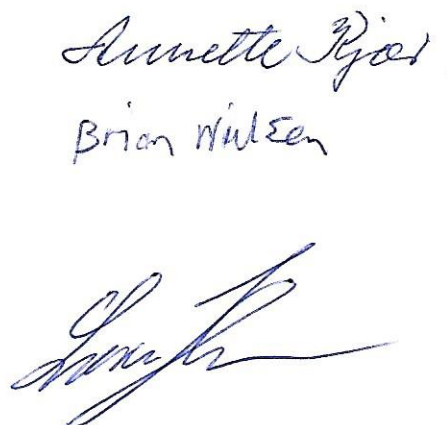 Annette Kjær
Brian Nielsen